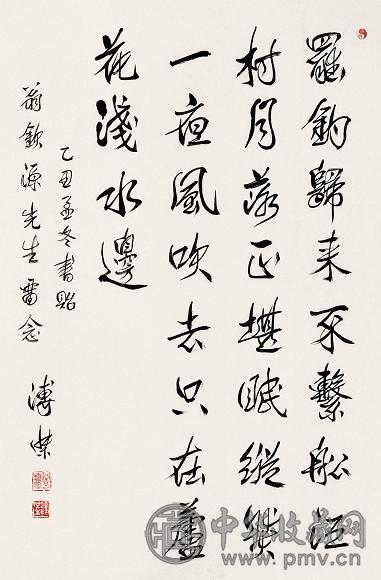 罷釣歸來不繫船江
村月落正堪眠縱然
一夜風吹去只在蘆
花淺水邊
乙丑孟冬書貽
翁欽源先生留念
溥傑
中华收藏网
www.pmv.cn